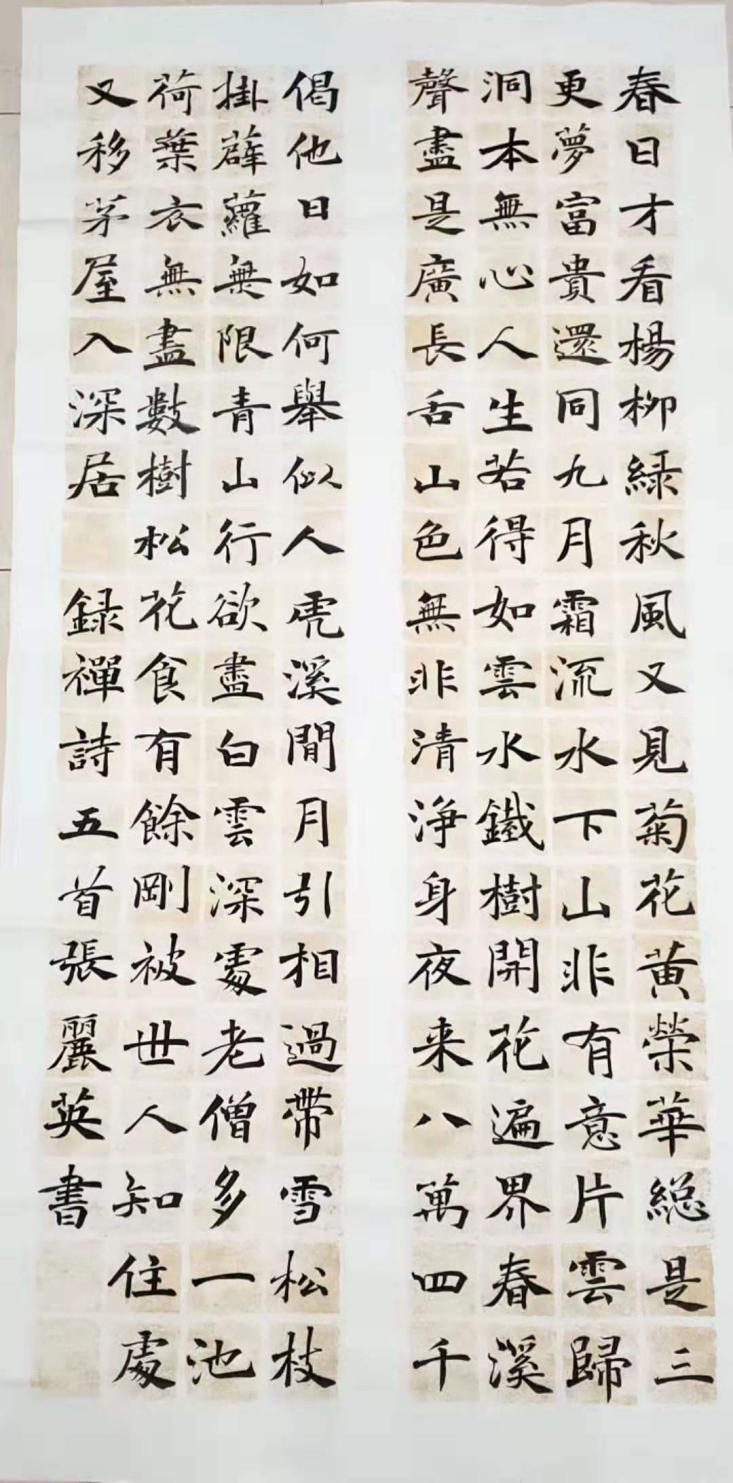 春日才看楊柳緑秋風又見菊花黄榮華総是三
更夢富貴還同九月霜流水下山非有意片雲歸
洞本無心人生若得如雲水鐵樹開花遍界春溪
聲盡是廣長舌山色無非清浄身夜来八萬四千
偈他日如何舉似人虎溪閒月引相過帶雪松枝
掛薜蘿無限青山行欲盡白雲深處老僧多一池
荷葉衣無盡數樹松花食有餘剛被世人知住處
又移茅屋入深居
録禪詩五首張麗英書